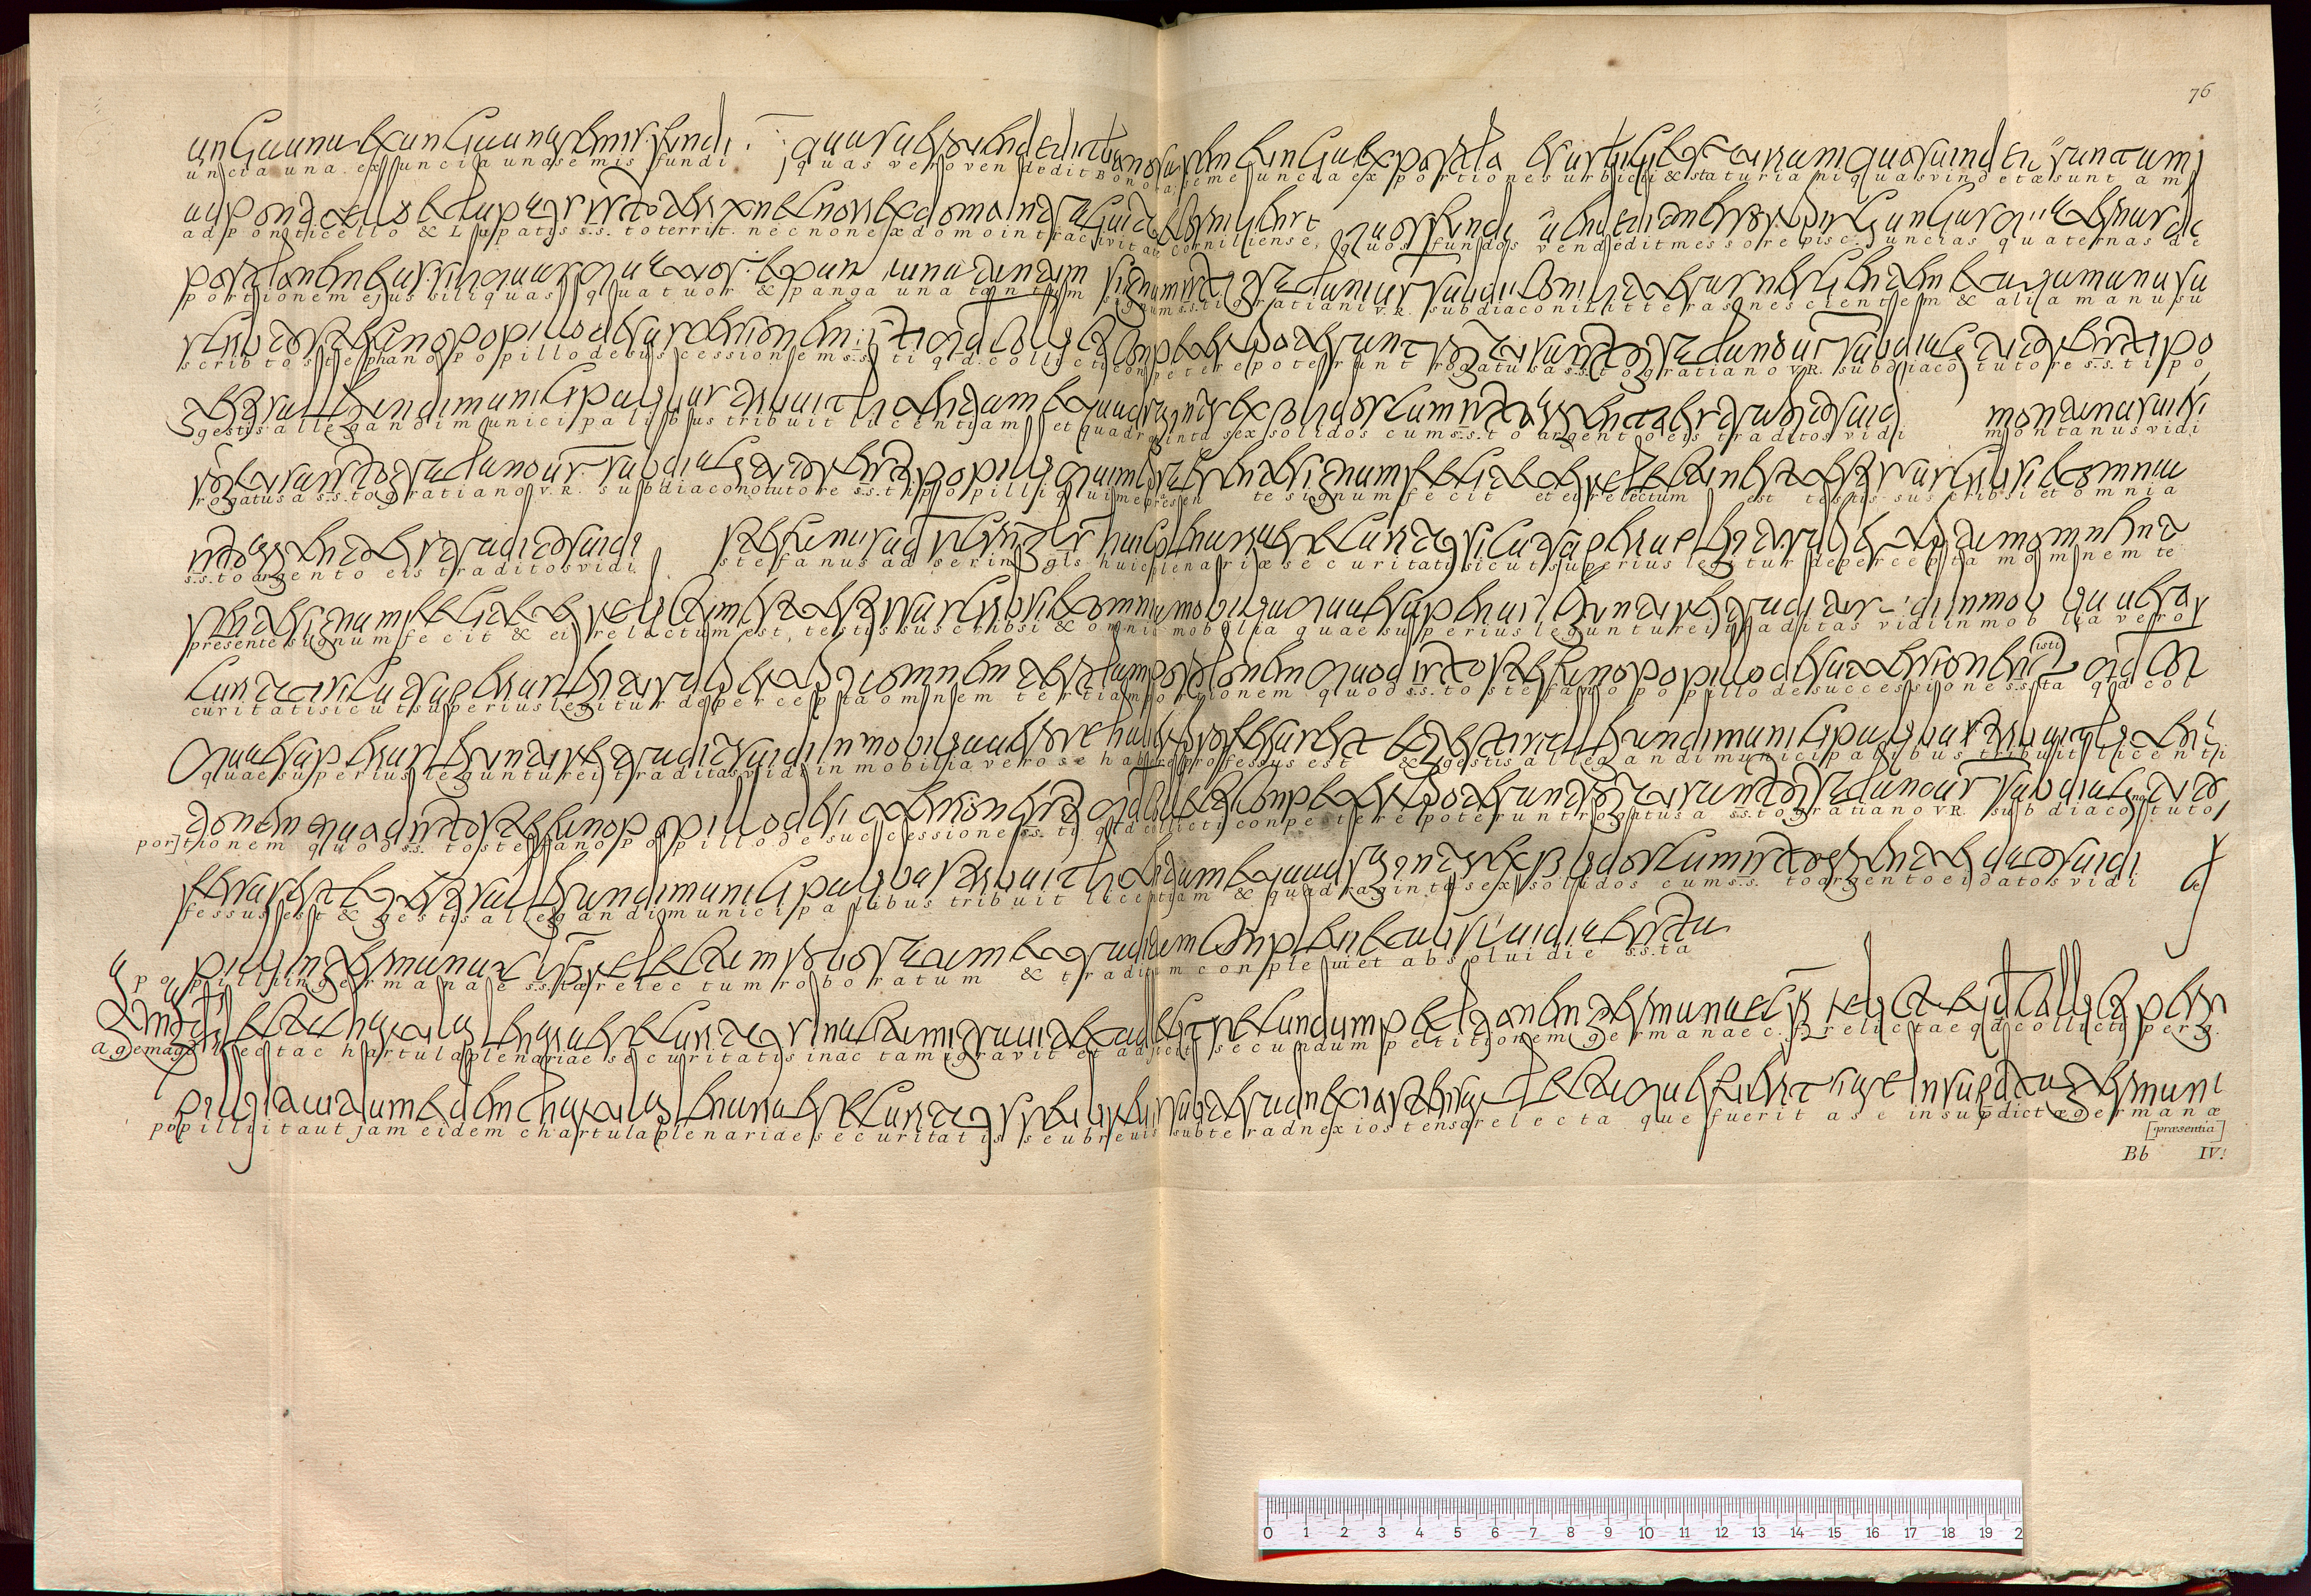 76
uncia una. ex uncia una semis fundi quas vero vendedit Bonosa, seme uncia ex portiones urbici & staturiani quas vindetæ sunt a m
ad ponticello & Lupatis s.s. to territ. nec non ex domo intra civitat Corniliense, quos fundos vendedit messor episc. uncias quaternas de
portionem ejus siliquas quatuor & panga una tantum signum s.s.ti gratiani V.R. subdiaconi Litteras nescientem & alia manu su
scribto stephano popillo de successionem s.s. ti qd. collicti conpetere poterunt rogatus a s.s. to gratiano V.R. subdiaco tutore s.s. ti po
gestis allegandi municipalibus tribuit licentiam et quadraginta sex solidos cum s.s. to argento eis traditos vidi montanus vidi
rogatus a s.s. to gratiano V.R. subdiacono tutore s.s. ti popilli qui me presen te signum fecit et ei relectum est testis suscribsi et omnia
s.s. to argento eis traditos vidi stefanus ad serin gis huic plenariæ securitati sicut superius legitur de percepta mominem te
presente signum fecit & ei relectum est, testis suscribsi & omnia mobilia quae superius leguntur ei traditas vidi inmob lia vero s
curitati sicut superius legitur de percepta ominem tertiam portionem quod s.s. to stefano popillo de successione s.s. ta qd col
quae superius leguntur ei traditas vidi inmobilia vero se habire professus est & gestis allegandi municipalibus tribuit licenti
por]tionem quod s.s. to stefano popillo de successione s.s. ti qd collicti conpetere poterunt rogatus a s.s. to gratiano VR. subdiacono tuto
fessus est & gestis allegandi municipalibus tribuit licentiam & quadraginta sex solidos cum s.s. to argento ei datos vidi
popilli ingermanae s.s. tæ relectum roboratum & traditam conplevi et absolvi die s.s. ta
agemag ectac hartula plenariae securitatis inac tamigravit et adjicit secundum petitionem germanae c. f. relictae qd collicti perg.
popilli ita ut jam eidem chartula plenariae securitatis seu brevis subter adnexi ostensa relecta que fuerit a se insupdictæ germanæ
[præsentia]
Bb IV.
0 1 2 3 4 5 6 7 8 9 10 11 12 13 14 15 16 17 18 19 2